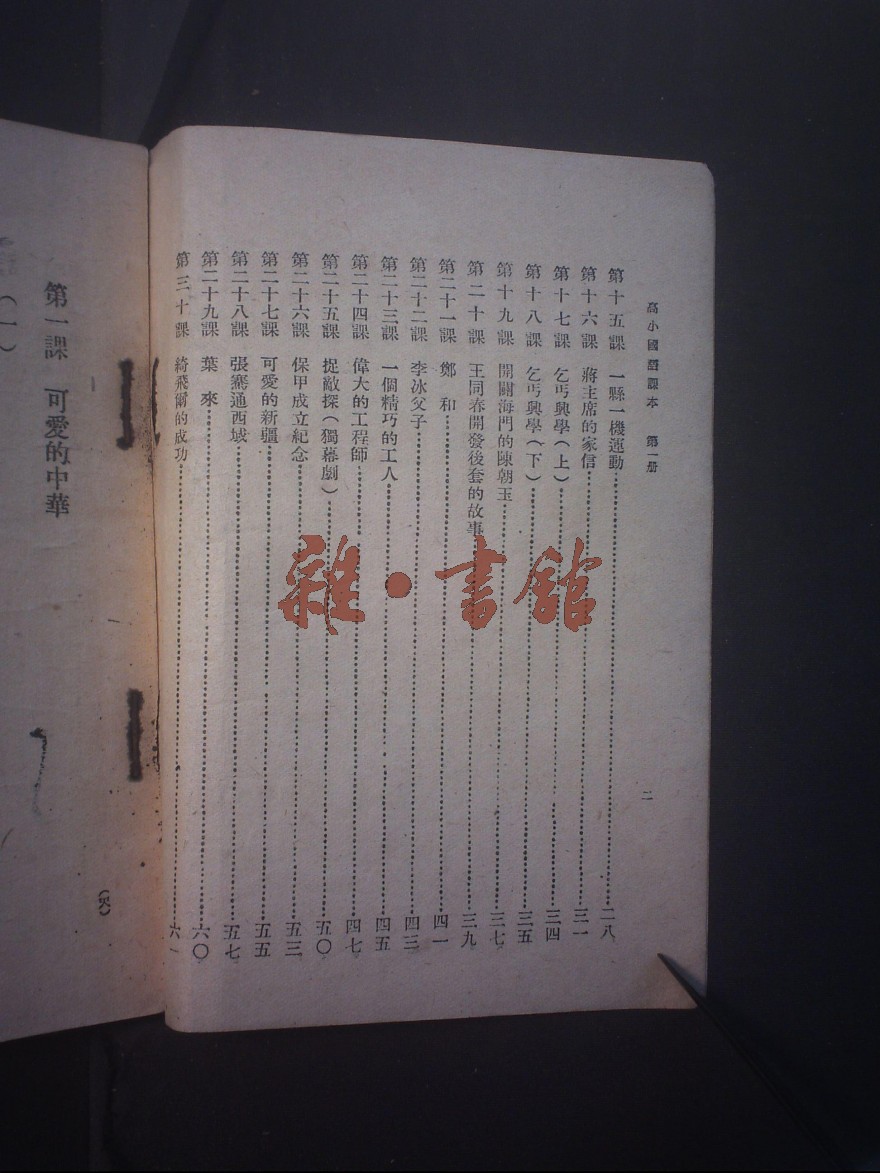 高小國語課本　第一册
第十五課　一縣一機運動……二八
第十六課　蔣主席的家信……三一
第十七課　乞丐興學（上）……三四
第十八課　乞丐興學（下）……三五
第十九課　開闢海門的陳朝玉……三七
第二十課　王同春開發後套的故事……三九
第二十一課　鄭和……四一
第二十二課　李冰父子……四三
第二十三課　一個精巧的工人……四五
第二十四課　偉大的工程師……四七
第二十五課　捉敵探（獨幕劇）……五〇
第二十六課　保甲成立紀念……五三
第二十七課　可愛的新疆……五五
第二十八課　張騫通西域……五七
第二十九課　葉來……六〇
第三十課　綺飛爾的成功……六一
二
第一課　可愛的中華
（一）
雜·書館